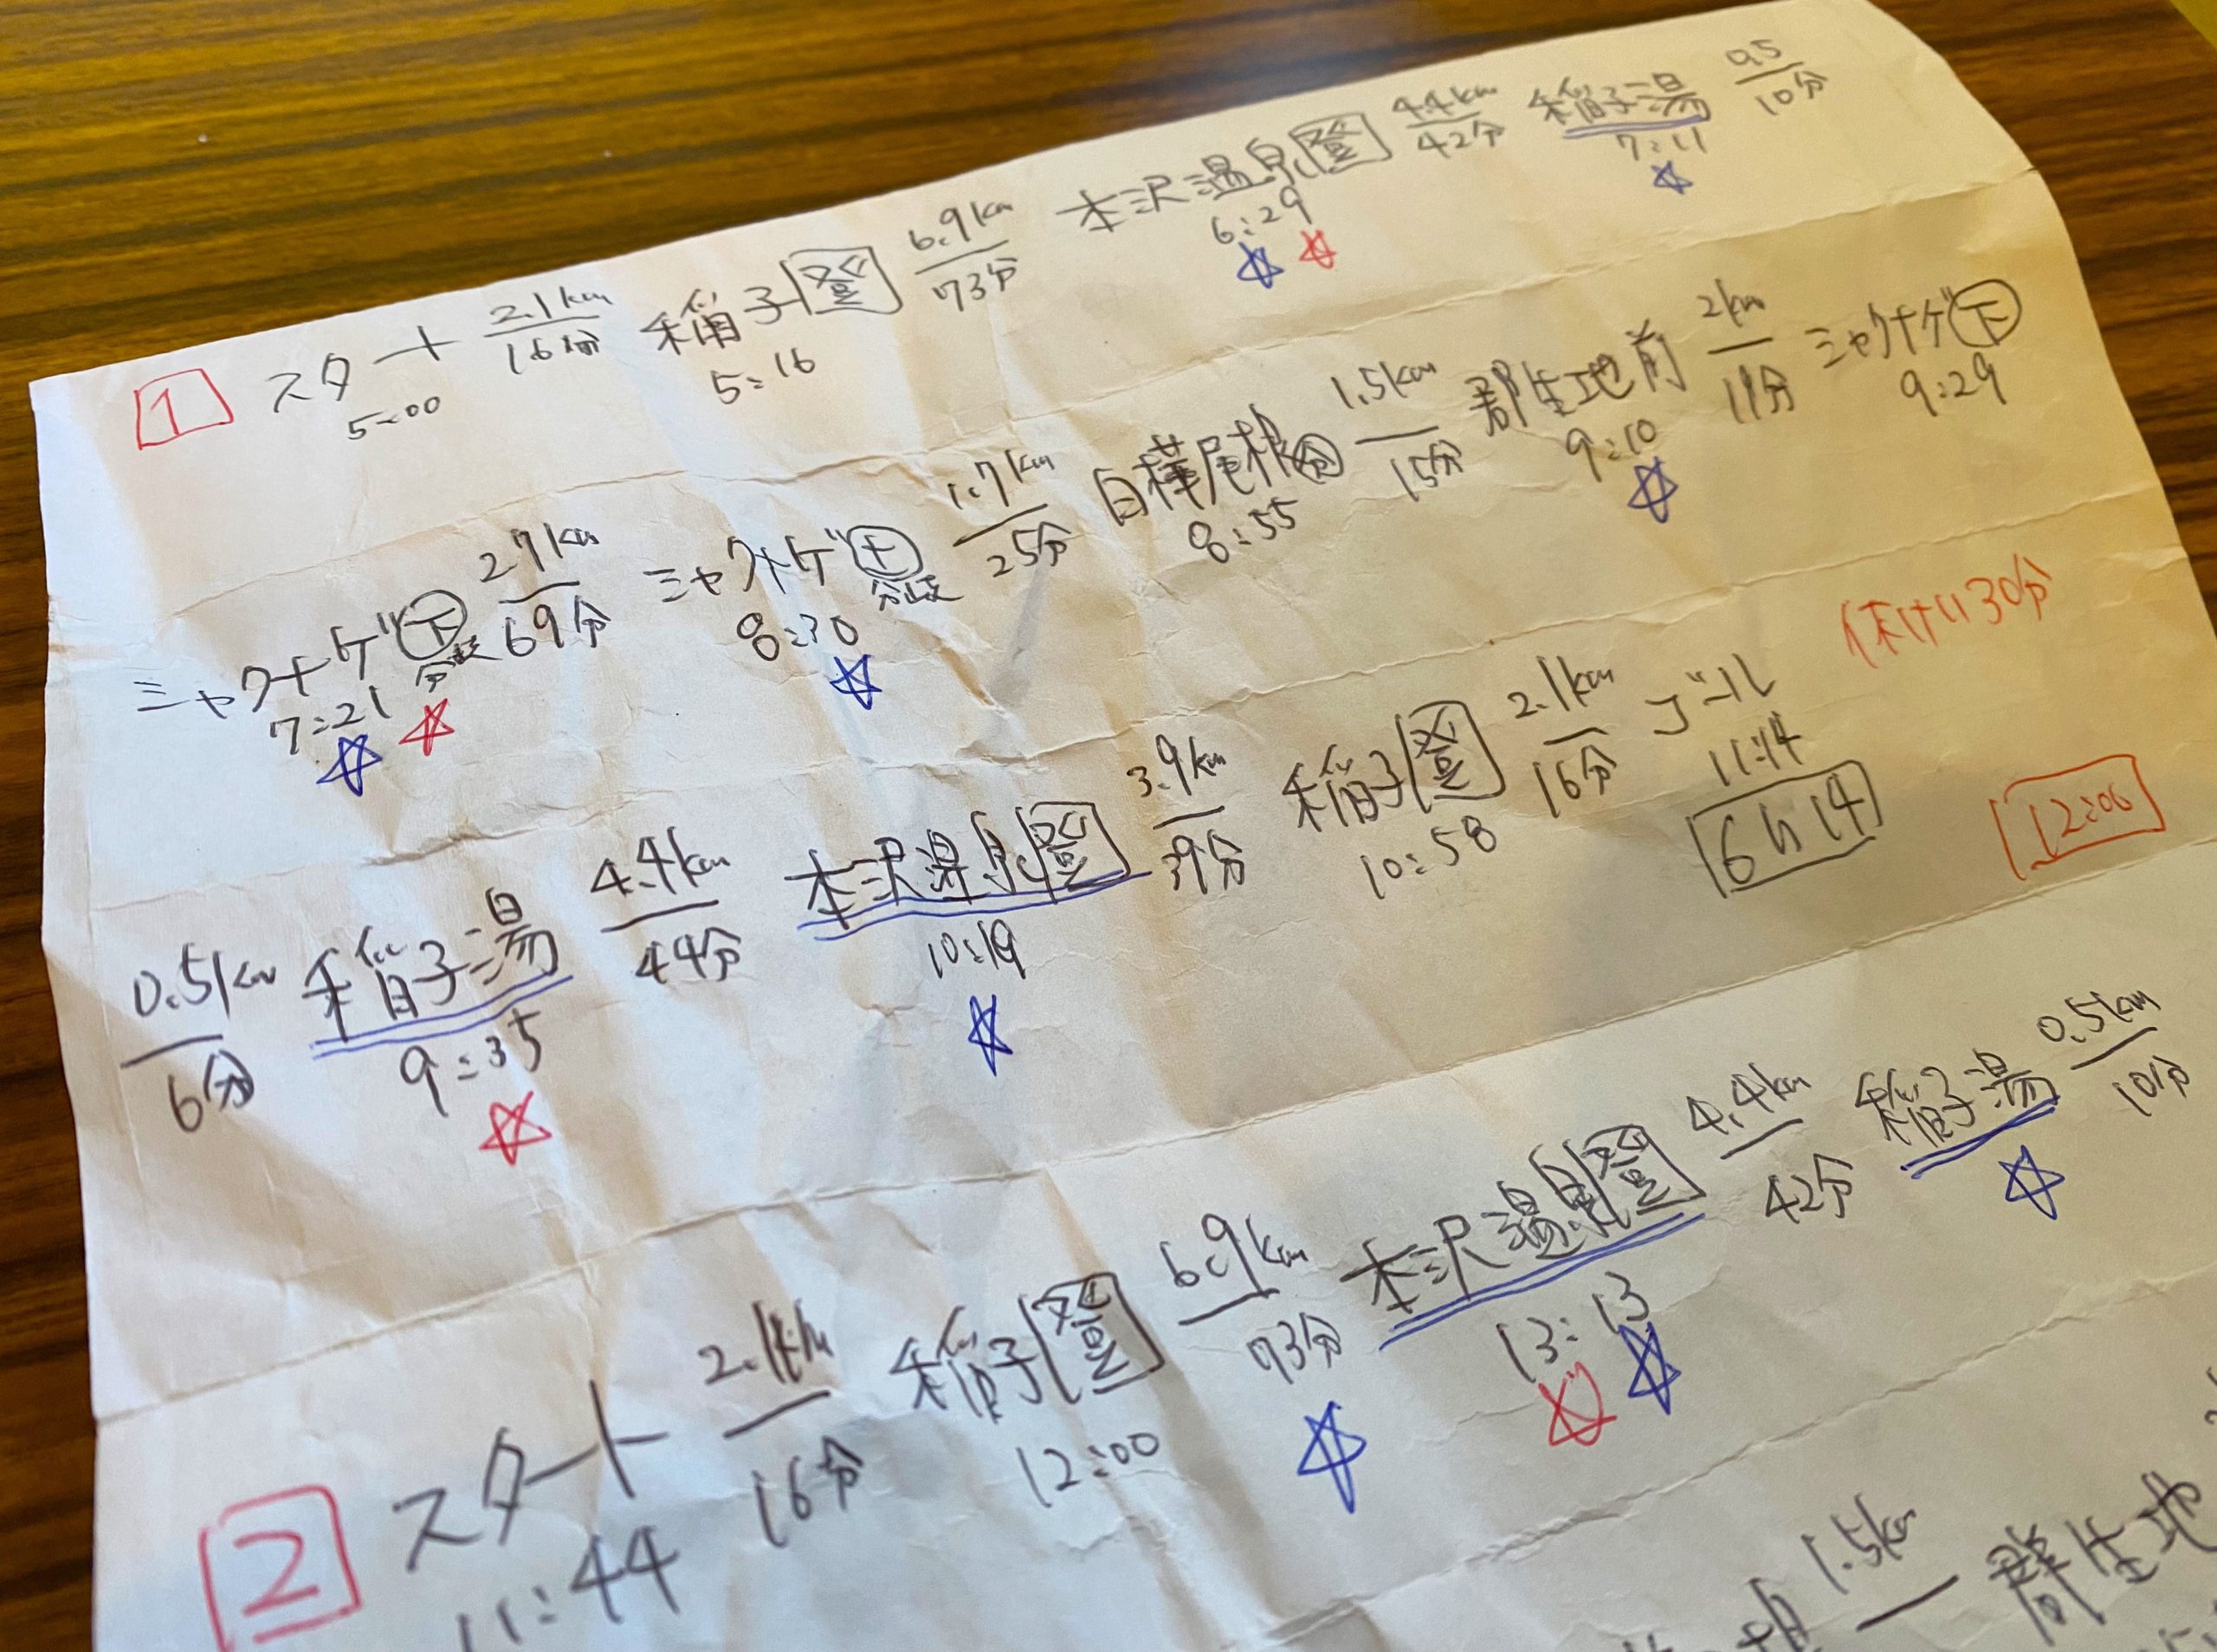 1 スタート 2.1km 16分 稲子登 6.9km 73分 本沢温泉登 4.4km 42分 稲子湯 0.5 10分
5:00 5:16 6:29 7:11
シャクナゲ下分岐 2.7km 69分 シャクナゲ上分岐 1.7km 25分 白樺尾根分 1.5km 15分 群生地前 2km 19分 シャクナゲ下
7:21 8:30 8:55 9:10 9:29
休けい30分
0.5km 6分 稲子湯 4.4km 44分 本沢温泉登 3.9km 39分 稲子登 2.1km 16分 ゴール
9:35 10:19 10:58 11:14
6h14
12:00
2 スタート 2.1km 16分 稲子登 6.9km 73分 本沢湯泉登 4.4km 42分 稲子湯 0.5km 10分
11:44 12:00 13:13
根 1.5km 群生地